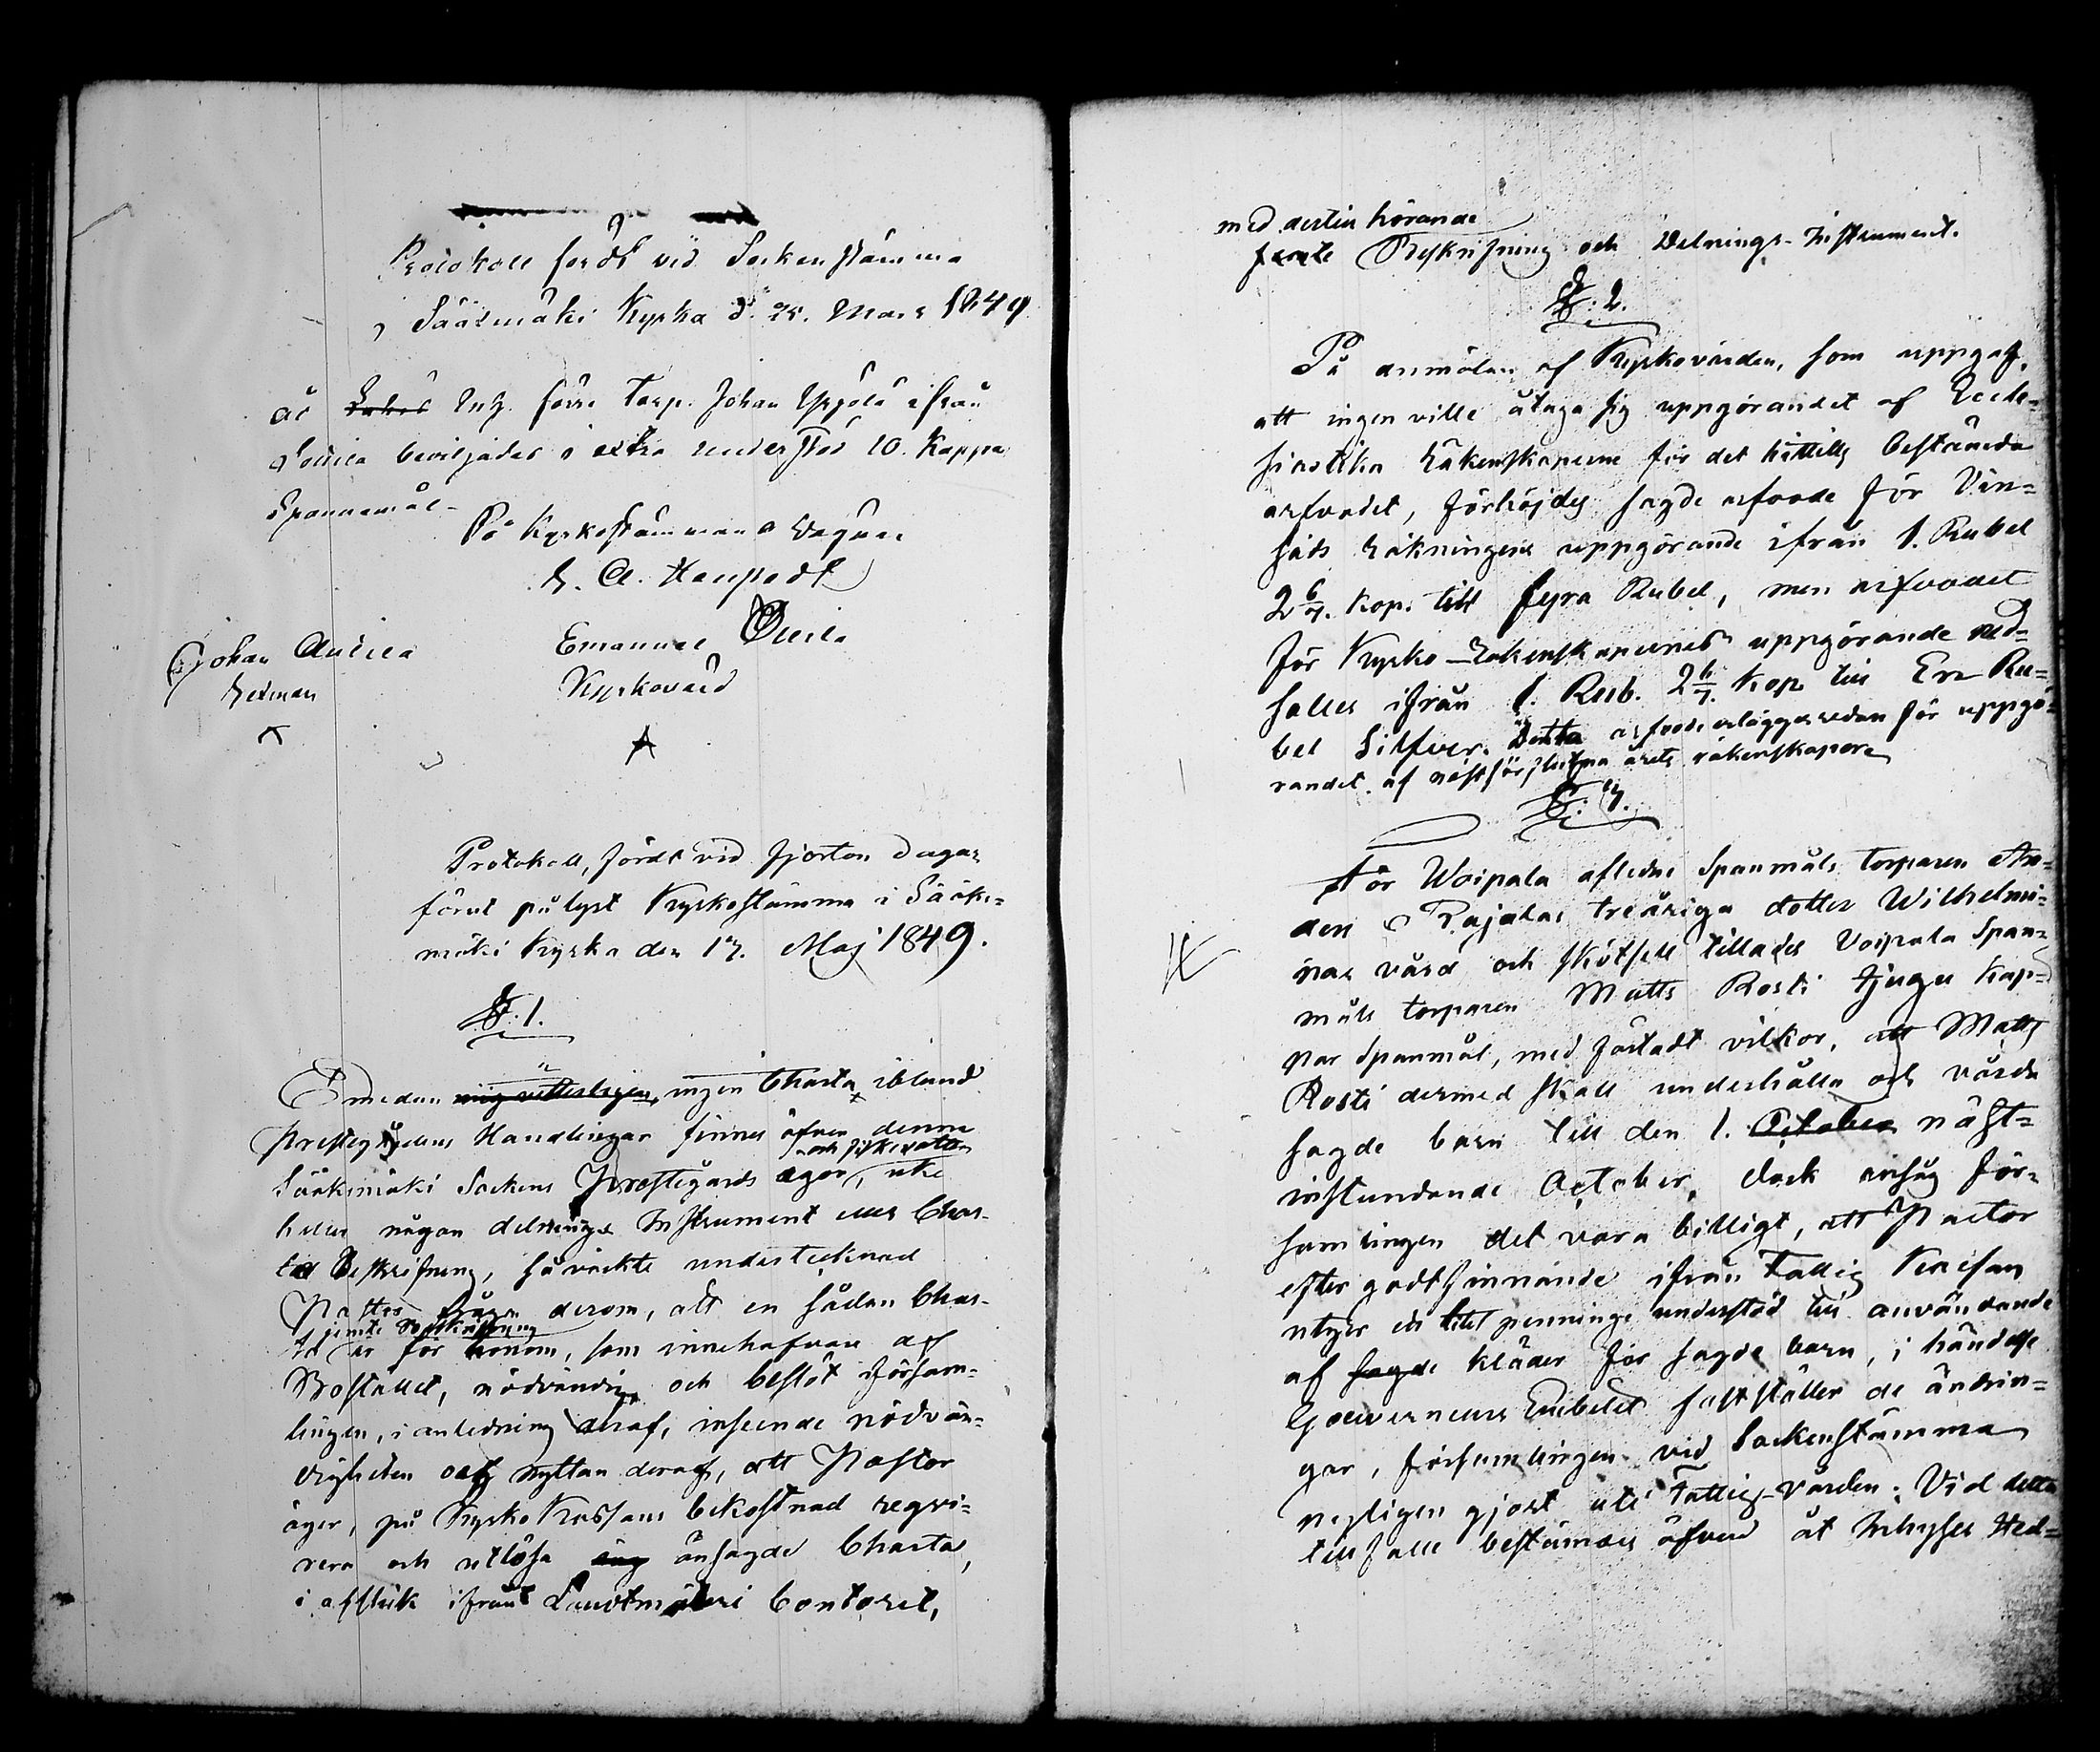 Protokoll fördt vid Sockenstämma
i Sääxmäki Kyrka d. 25. Mars 1849
åt Inh. förre Torp. Johan Yrjölä ifrån
beviljades i extra understöd 10. Kappa
Spannemål.
På Kyrkostämmans vägnar
Emanuel
Johan
Kyrkovärd
Protokoll, fördt vid fjorton dagar
förut pålyst Kyrkostämma i Sääks-
mäki Kyrka den 17. Maj 1849.
§. 1.
Emedan mig vetterligen, ingen Charta ibland
Prestegårdens Handlingar finnes öfver denne
och fiskevatten
Sääksmäki Sockens Prostegårds ägor, icke
heller någon delnings Instrument eller Char-
tæ Beskrifning, så väckte undertecknad
Pastor frågan derom, att en sådan Char-
jemte Beskrifning
ta är för honom, som innehafvare af
Bostället, nödvändig och beslöt Försam-
lingen, i anledning deraf, inseende nödvän-
digheten och nyttan deraf, att Pastor
äger, på Kyrko Kassans bekostnad reqvi-
rera och utlösa ansagde Charta,
i afskrift ifrån Landtmäteri Contoret,
med dertill hörande
jemte Beskrifning och Delnings-Instrument.
§. 2.
På anmälan af Kyrkovärden, som uppgaf,
att ingen ville åtaga sig uppgörandet af Eccle-
siastika Räkenskaperne för det hittills bestämda
arfvodet, förhöjdes sagde arfvode för Vin-
säds Räkningens uppgörande ifrån 1. Rubel
2 6/7. Kop. till fyra Rubel, men arfvodet
för Kyrko-Räkenskapernes uppgörande ned-
sattes ifrån 1. Rub. 2 6/7. Kop till En Ru-
bel Silfver. Detta arfvode erlägges redan för uppgö-
randet af nästförflutna årets räkenskaper
§. 3.
För Woipala aflidne Spanmåls torparen An-
ders Rajalas treåriga dotter Wilhelmi-
nas vård och skötsel tillades Voipala Span-
måls torparen Matts Rosti tjugu Kap-
par Spanmål, med fästadt vilkor, att Matts
Rosti dermed skall underhålla och vårda
sagde barn till den 1. October näst-
instundande October, dock ansåg För-
samlingen det vara billigt, att Pastor
efter godtfinnande ifrån Fattig Kassan
utger ett litet pennings understöd till användande
af sagde kläder för sagde barn, i händelse
Gouverneurs Embetet fastställer de ändrin-
gar, församlingen vid Sockenstämma
nyligen gjort uti Fattig-vården. Vid detta
tillfälle bestämdes äfven åt Inhyses Hed-